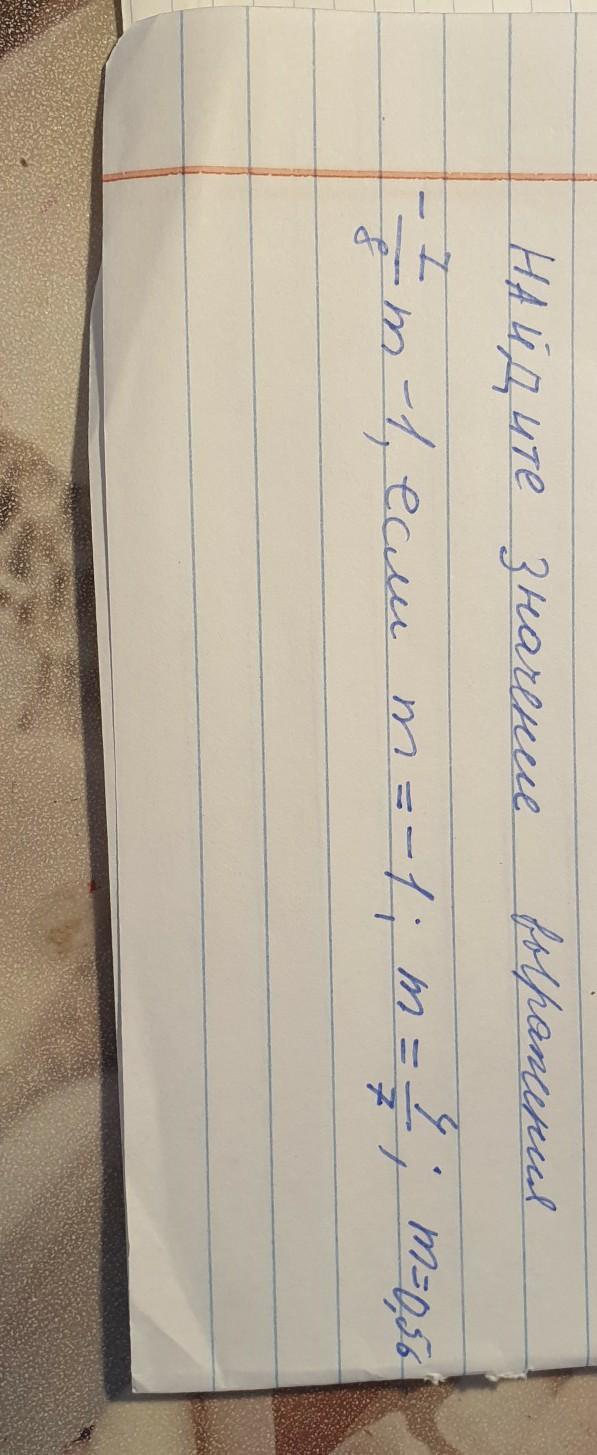 НАЙДИТЕ значение выражения
- 7/8 m - 1, если m = -1; m = 4/7; m = 0,56